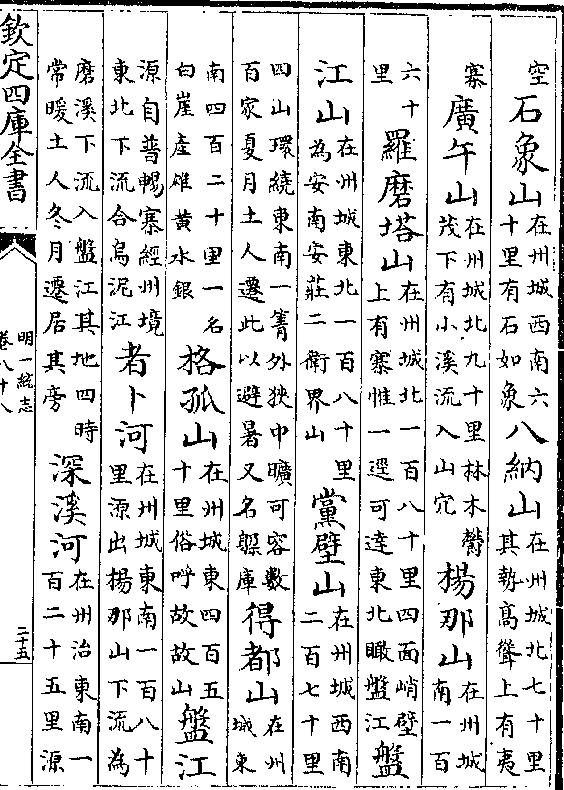 空石象山在州城西南六十里有石如象八納山在州城北七十里其勢高聳上有夷
寨廣午山在州城北九十里林木鬱茂下有小溪流入山宂楊那山在州城南一百
六十里羅磨塔山在州城北一百八十里四面峭壁上有寨惟一逕可達東北瞰盤江盤
江山在州城東北一百八十里為安南安莊二衛界山黨壁山在州城西南二百七十里
四山環繞東南一箐外狹中曠可容數百家夏月土人遷此以避暑又名躲庫得都山在州城東
南四百二十里一名白崖產雄黃水銀格孤山在州城東四百五十里俗呼故故山盤江
源自普暢寨經州境東北下流合烏泥江者卜河在州城東南一百八十里源出楊那山下流為
磨溪下流入盤江其地四時常暖土人冬月遷居其旁深溪河在州治東南一百二十五里源
欽定四庫全書
明一統志
卷八十八
二十五